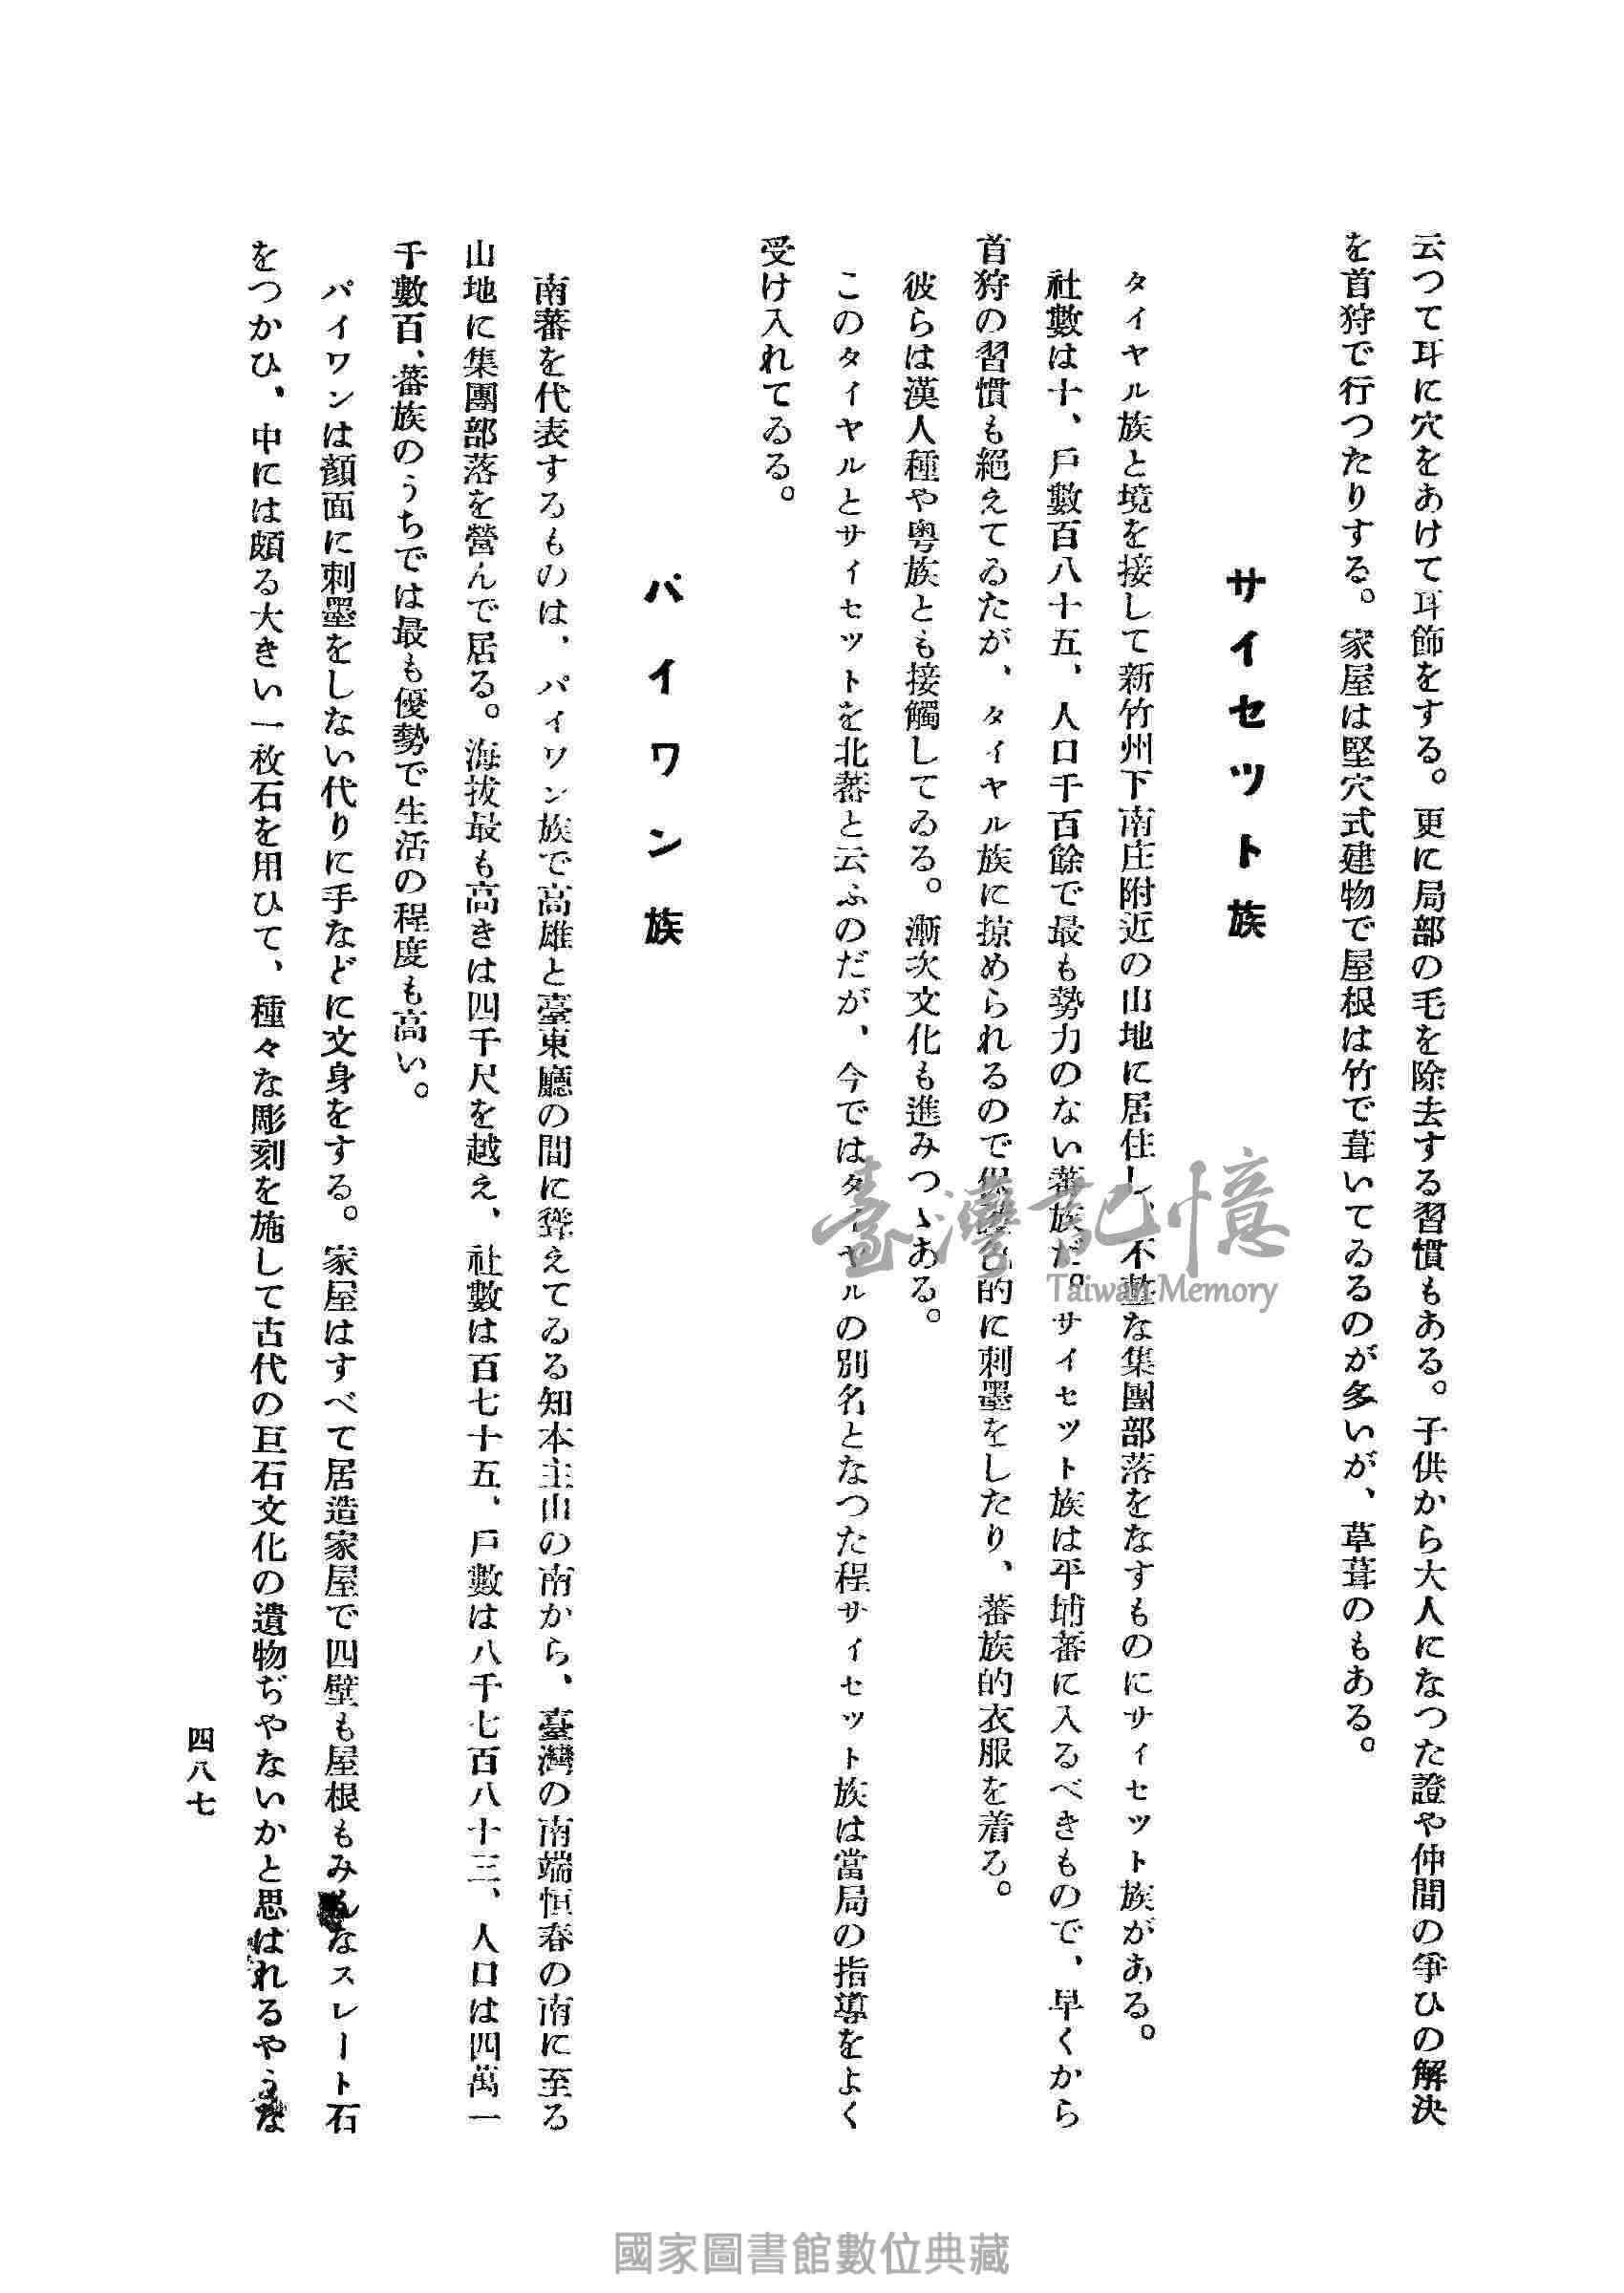 云つて耳に穴をあけて耳飾をする。更に局部の毛を除去する習慣もある。子供から大人になつた證や仲間の爭ひの解決
を首狩で行つたりする。家屋は堅穴式建物で屋根は竹で葺いてゐるのが多いが、草葺のもある。
サイセツト族
タイヤル族と境を接して新竹州下南庄附近の山地に居住し、不整な集團部落をなすものにサイセツト族がある。
社數は十、戶數百八十五、人口千百餘で最も勢力のない蕃族だ。サイセツト族は平埔蕃に入るべきもので、早くから
首狩の習慣も絕えてゐたが、タイヤル族に掠められるので保護色的に刺墨をしたり、蕃族的衣服を着る。
彼らは漢人種や粤族とも接觸してゐる。漸次文化も進みつゝある。
このタイヤルとサイセツトを北蕃と云ふのだが、今ではタイヤルの別名となつた程サイセツト族は當局の指導をよく
受け入れてゐる。
パイワン族
南蕃を代表するものは、パイワン族で高雄と臺東廳の間に聳えてゐる知本主山の南から、臺灣の南端恒春の南に至る
山地に集團部落を營んで居る。海拔最も高きは四千尺を越え、社數は百七十五、戶數は八千七百八十三、人口は四萬一
千數百、蕃族のうちでは最も優勢で生活の程度も高い。
パイワンは顏面に刺墨をしない代りに手などに文身をする。家屋はすべて居造家屋で四壁も屋根もみんなスレート石
をつかひ、中には頗る大きい一枚石を用ひて、種々な彫刻を施して古代の巨石文化の遺物ぢやないかと思はれるやうな
四八七
臺灣記憶
Taiwan Memory
國家圖書館數位典藏